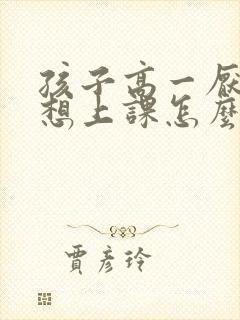 孩子高一厭
想上課怎麼
賈彥玲